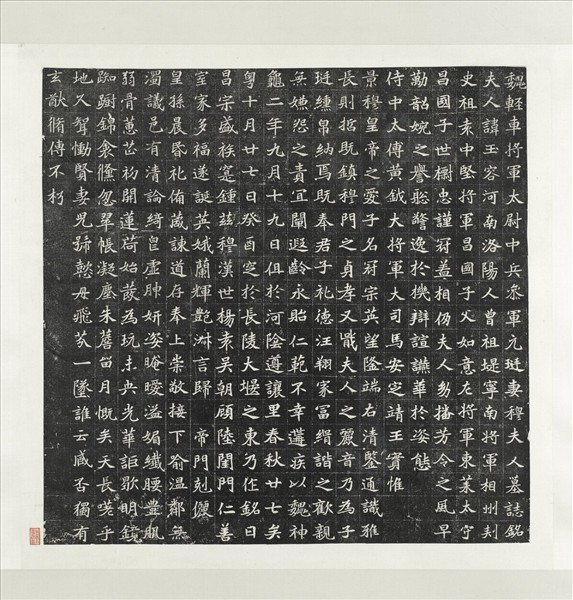 魏輕車將軍太尉中兵參軍元珽妻穆夫人墓誌銘
夫人諱玉容河南洛陽人曾祖堤寧南將軍相州刾
史祖袁中堅將軍昌國子父如意左將軍東萊太守
昌國子世樹忠謹冠蓋相仍夫人幼播芳令之風早
勤韶婉之譽聡警逸於機辯諠讌華於姿態
侍中太傅黃鉞大將軍大司馬安定靖王實惟
景穆皇帝之愛子名冠宗英望隆端右清鑒通識雅
長則哲既鎮穆門之貞孝又戢夫人之麗音乃為子
珽纁帛納焉既奉君子礼德汪翔家富緝諧之歡親
無嫌怨之責宜闡遐齡永貽仁範不幸遘疾以魏神
龜二年九月十九日俎於河陰遵讓里春秋廿七矣
粵十月廿七日癸酉窆於長陵大堰之東乃作銘曰
昌宗盛族寔鍾茲穆漢世楊袁吳朝顧陸閨門仁善
室家多福遂誕英娥蘭輝艷淋言歸 帝門剋儷
皇孫晨昏礼侑葴諫道存奉上崇敬接下喻溫鄰無
濁議邑有清論綺皃虛肿妍姿晻曖溢媚纖腰豐肌
弱骨蕙芷初開蓮荷始發為玩未央光華詎歇明鏡
踟躕錦衾儵忽翠帳凝塵朱簷留月慨矣天長嗟乎
地久聟慟賢妻兒號懿母飛芬一墜誰云臧否獨有
玄猷脩傳不朽